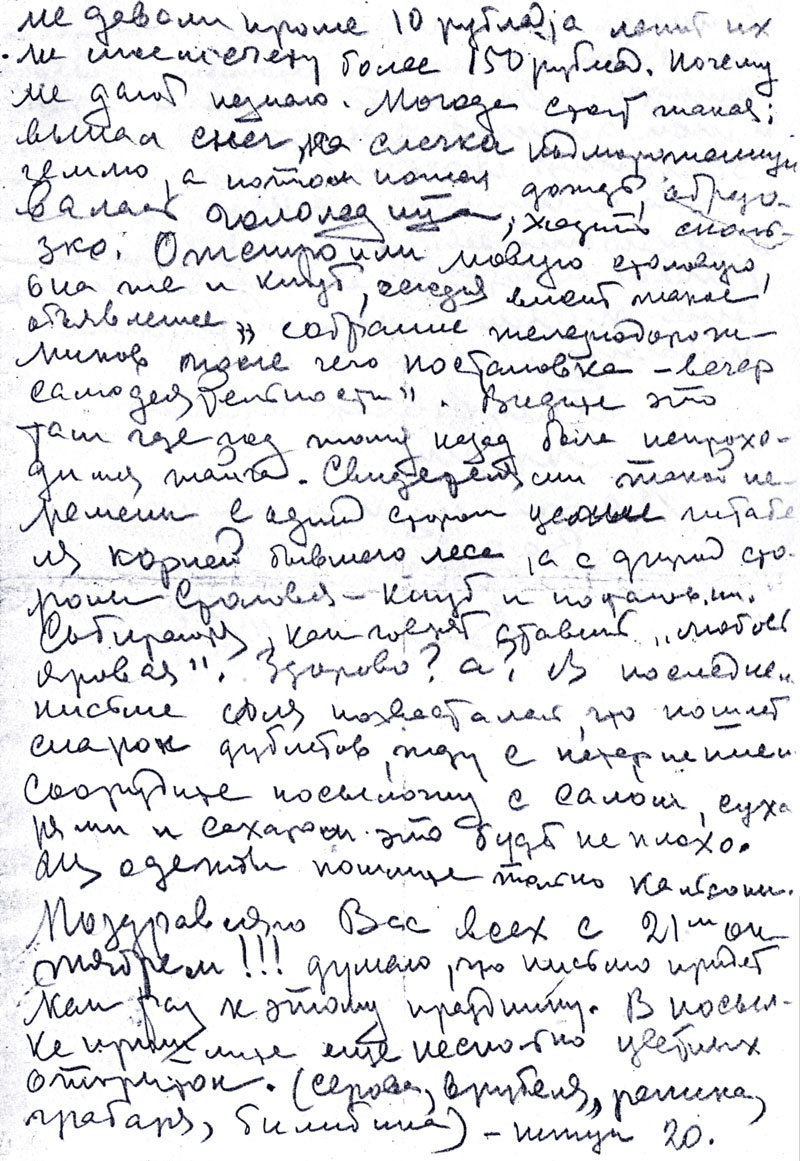 не давали кроме 10 рублей, а их
на счету более 150 рублей. Почему
не дают незнаю. Погода стоит такая:
выпал снег, слегка подмороженную
землю, а потом пошел дождь, образо-
валась гололедица, ходить сколь-
зко. Отстроили новую столовую,
она же и клуб, сегодня висит такое
объявление „собрание железнодорож-
ников после чего постановка – вечер
самодеятельности". Видите это
там где год тому назад была непрохо-
димая тайга. Свидетелями такой пе-
ремены с одной стороны целые штабе
ля корней бывшего леса, а с другой сто-
роны Столовая – клуб и постановки.
Собираются, как говорят ставить „Любовь
Яровая". Здорово? а? В последнем
письме похвастался, что пошлет
марок дублетов, жду с нетерпением
Соорудите посылочку с салом, суха
рями и сахаром это будет не плохо.
Из одежды пошлите только кальсоны.
Поздравляю Вас всех с 21ым ок-
тябрем!!! думаю, что письмо придет
как раз к этому празднику. В посыл-
ке пришлите еще несколько цветных
открыток. (серова, врубеля, репина,
грабаря, билибина) – штук 20.